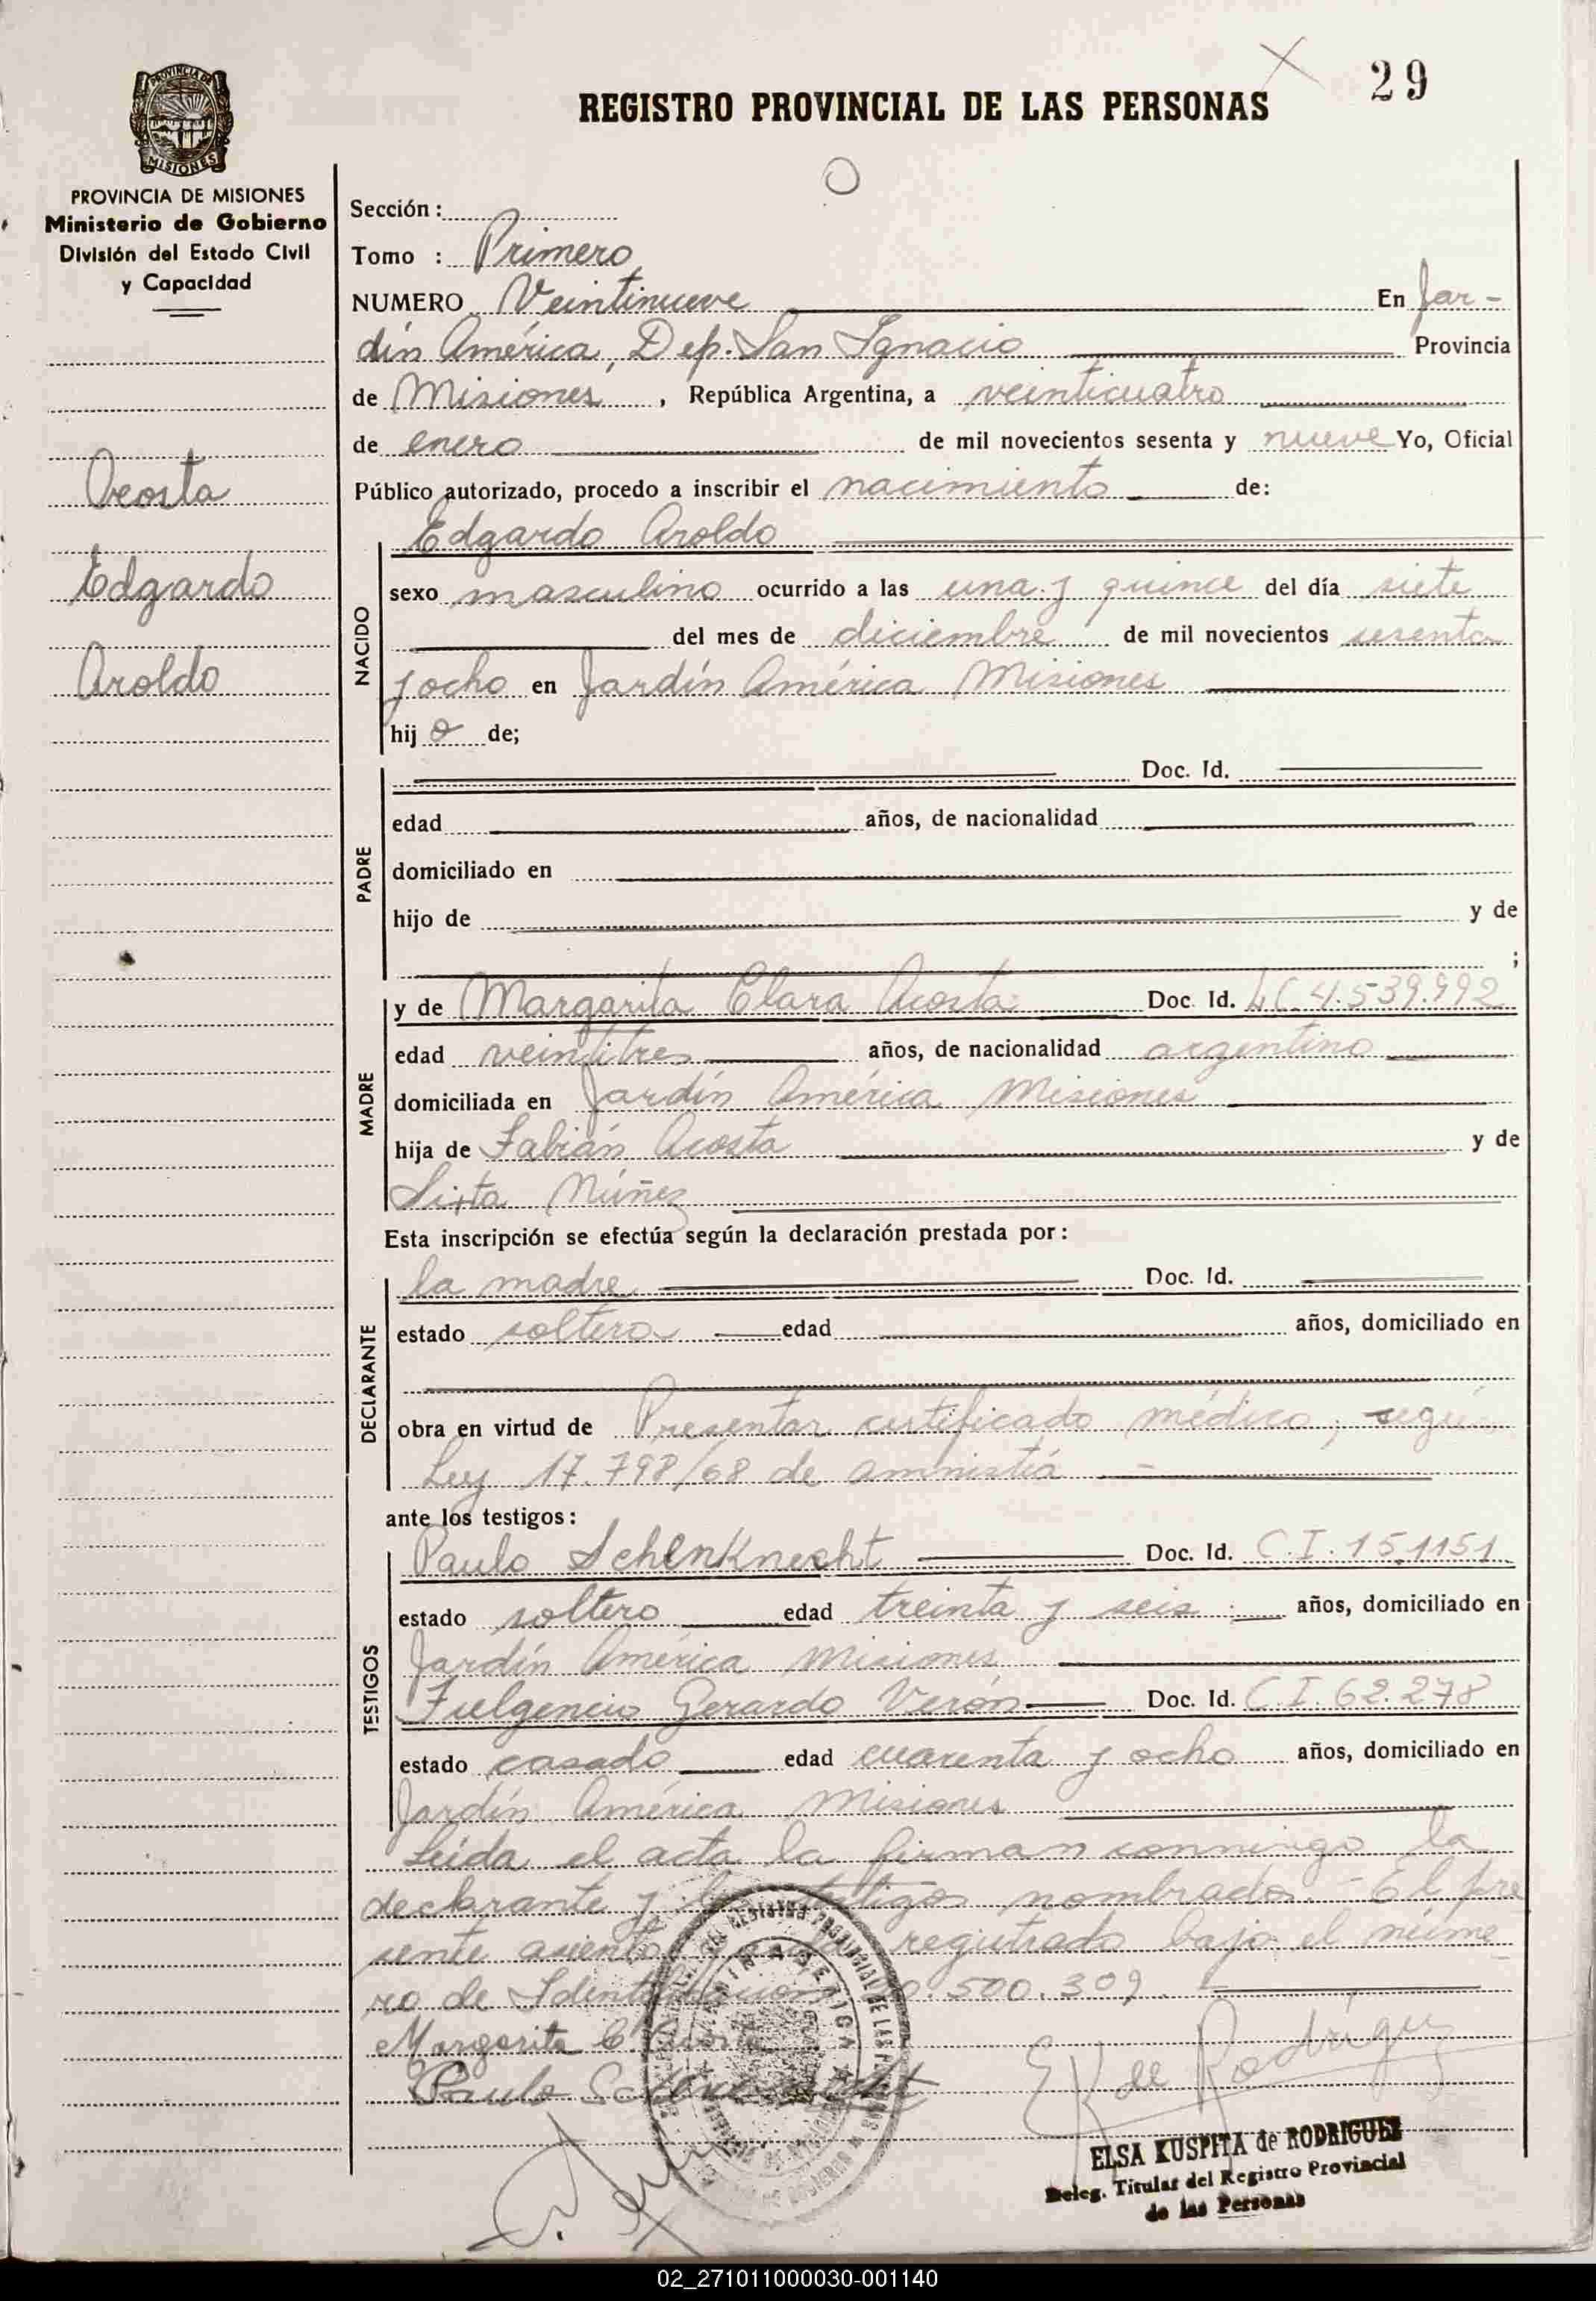 29
REGISTRO PROVINCIAL DE LAS PERSONAS
PROVINCIA DE
MISIONES
PROVINCIA DE MISIONES
Ministerio de Gobierno
División del Estado Civil
y Capacidad
Acosta
Edgardo
Aroldo
Sección :
Tomo : Primero
NUMERO Veintinueve En Jar-
dín América, Dep. San Ignacio Provincia
de Misiones, República Argentina, a veinticuatro
de enero de mil novecientos sesenta y nueve Yo, Oficial
Público autorizado, procedo a inscribir el nacimiento de:
NACIDO
Edgardo Aroldo
sexo masculino ocurrido a las una y quince del día siete
del mes de diciembre de mil novecientos sesenta
y ocho en Jardín América Misiones
hij o de;
PADRE
Doc. Id.
edad años, de nacionalidad
domiciliado en
hijo de y de
;
MADRE
y de Margarita Clara Acosta Doc. Id. LC 4.539.992
edad veintitres años, de nacionalidad argentino
domiciliada en Jardín América Misiones
hija de Fabián Acosta y de
Sixta Núñez
Esta inscripción se efectúa según la declaración prestada por:
DECLARANTE
la madre Doc. Id.
estado soltera edad años, domiciliado en
obra en virtud de Presentar certificado médico, según
Ley 17.798/68 de amnistía
ante los testigos:
TESTIGOS
Paulo Schenknecht Doc. Id. C.I. 151151
estado soltero edad treinta y seis años, domiciliado en
Jardín América Misiones
Fulgencio Gerardo Verón Doc. Id. C.I. 62.278
estado casado edad cuarenta y ocho años, domiciliado en
Jardín América Misiones
Leida el acta la firman conmingo la
declarante y testigos nombrados.- El pre
sente asiento registrado bajo el núme
ro de 500.309.
Margarita C. Acosta
Paulo
E K de Rodríguez
ELSA KUSPITA de RODRIGUEZ
Deleg. Titular del Registro Provincial
de las Personas
02_271011000030-001140